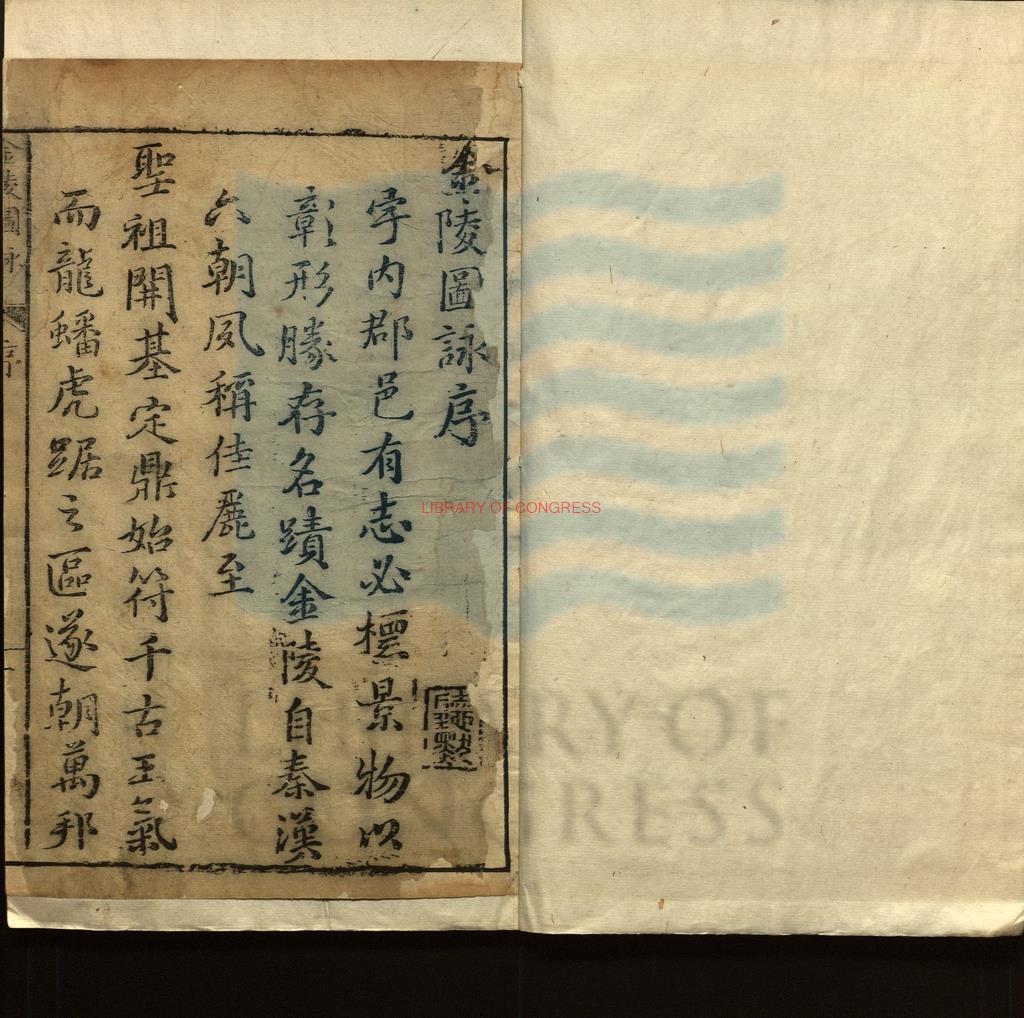 金陵圖詠序
宇内郡邑有志必標景物以
彰形勝存名蹟金陵自秦漢
六朝夙稱佳麗至
聖祖開基定鼎始符千古王氣
而龍蟠虎踞之區遂朝萬邦
金陵圖詠
序
一
LIBRARY OF CONGRESS
LIBRARY OF
CONGRESS